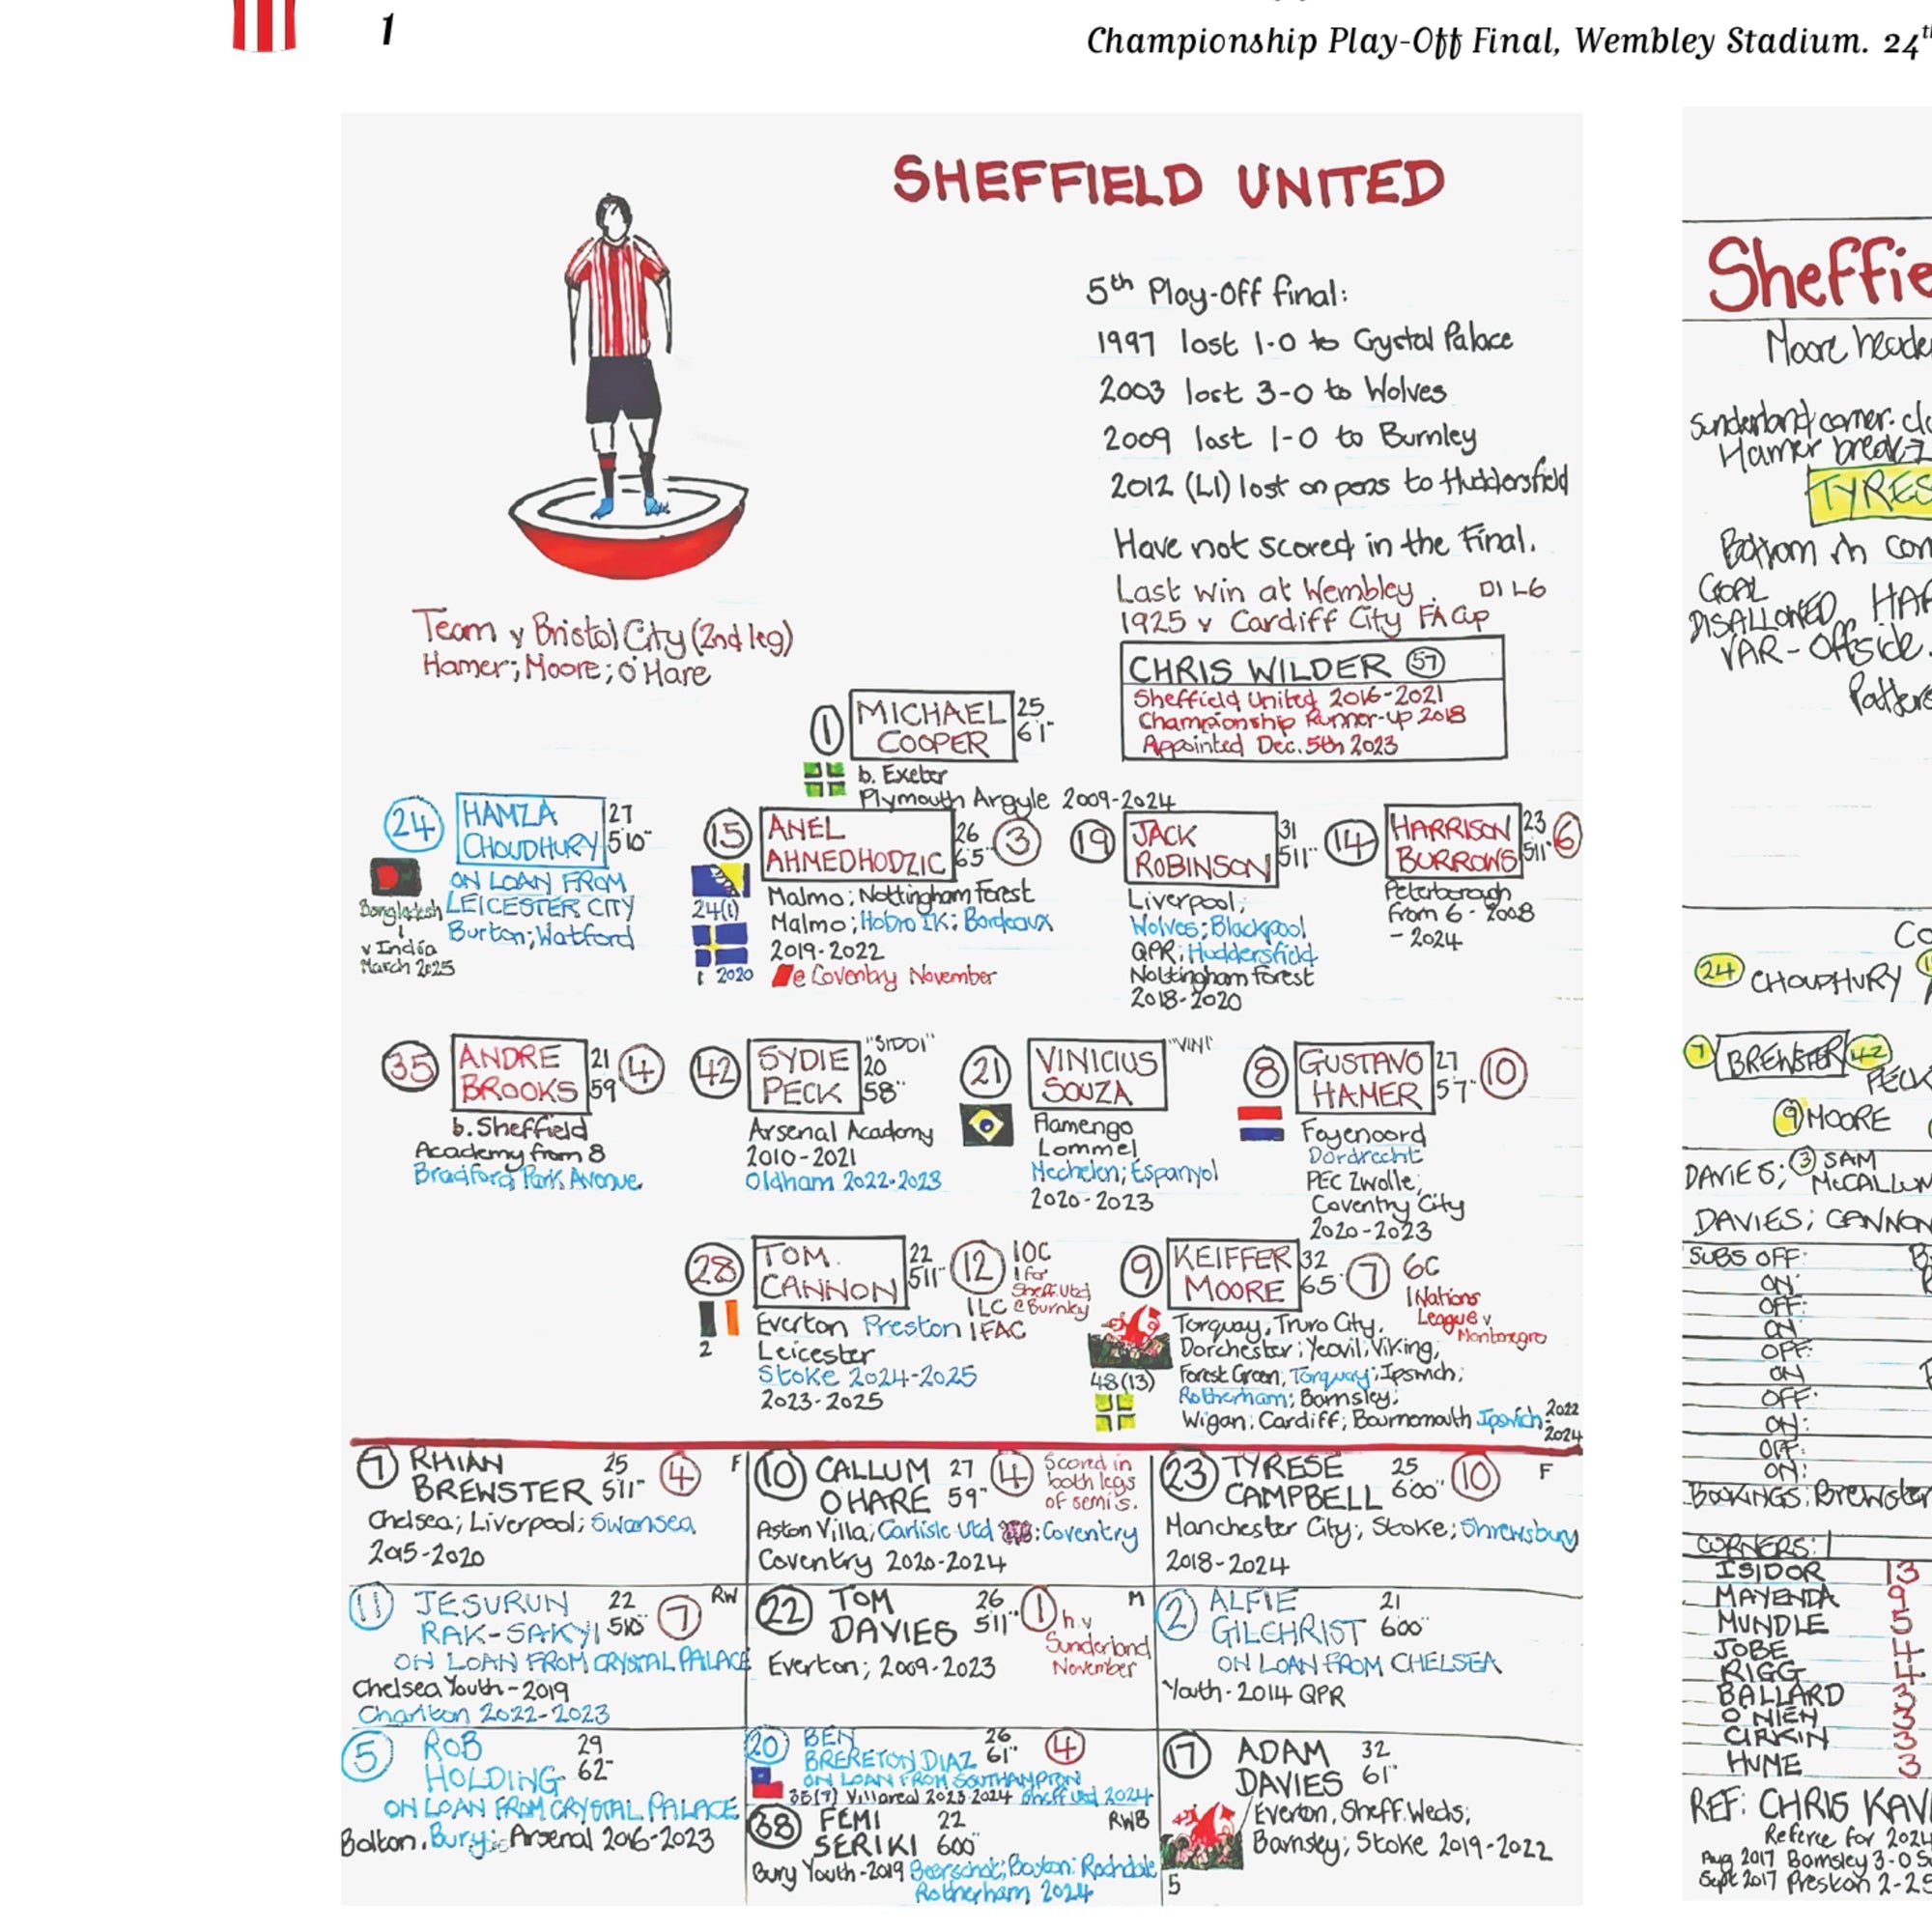 1
Championship Play-Off Final, Wembley Stadium. 24th
SHEFFIELD UNITED
5th Play-Off final:
1997 lost 1-0 to Crystal Palace
2003 lost 3-0 to Wolves
2009 lost 1-0 to Burnley
2012 (L1) lost on pens to Huddersfield
Have not scored in the Final.
Last win at Wembley. D1 L6
1925 v Cardiff City FA Cup
Team v Bristol City (2nd leg)
Hamer; Moore; O'Hare
CHRIS WILDER 57
Sheffield United 2016-2021
Championship Runner-up 2018
Appointed Dec. 5th 2023
1 MICHAEL COOPER 25 6'1"
b. Exeter
Plymouth Argyle 2009-2024
24 HAMZA CHOUDHURY 27 5'10"
ON LOAN FROM
LEICESTER CITY
Burton; Watford
Bangladesh
1
v India
March 2025
15 ANEL AHMEDHODZIC 26 6'5" 3
Malmo; Nottingham Forest
Malmo; Hobro IK: Bordeaux
2019-2022
@ Coventry November
24(1)
1 2020
19 JACK ROBINSON 31 5'11"
Liverpool;
Wolves; Blackpool
QPR; Huddersfield
Nottingham Forest
2018-2020
14 HARRISON BURROWS 23 5'11" 6
Peterborough
from 6 - 2008
- 2024
35 ANDRE BROOKS 21 5'9 4
b. Sheffield
Academy from 8
Bradford Park Avenue
42 SYDIE PECK "SIDDI" 20 5'8"
Arsenal Academy
2010-2021
Oldham 2022-2023
21 VINICIUS SOUZA "VINI"
Flamengo
Lommel
Mechelen; Espanyol
2020-2023
8 GUSTAVO HAMER 27 5'7" 10
Feyenoord
Dordrecht
PEC Zwolle;
Coventry City
2020-2023
28 TOM CANNON 22 5'11" 12
10C
1 for
Sheff. Utd
@ Burnley
1LC
1FAC
Everton Preston
Leicester
Stoke 2024-2025
2023-2025
2
9 KEIFFER MOORE 32 6'5" 7
6C
1 Nations
League v
Montenegro
Torquay, Truro City,
Dorchester; Yeovil; Viking,
Forest Green; Torquay; Ipswich;
Rotherham; Barnsley;
Wigan; Cardiff; Bournemouth Ipswich 2022
2024
48(13)
7 RHIAN BREWSTER 25 5'11" 4 F
Chelsea; Liverpool; Swansea
2015-2020
10 CALLUM O'HARE 27 5'9" 4
Scored in
both legs
of semis.
Aston Villa; Carlisle Utd: Coventry
Coventry 2020-2024
23 TYRESE CAMPBELL 25 6'00" 10 F
Manchester City; Stoke; Shrewsbury
2018-2024
11 JESURUN RAK-SAKYI 22 5'10" 7 RW
ON LOAN FROM CRYSTAL PALACE
Chelsea Youth - 2019
Charlton 2022-2023
22 TOM DAVIES 26 5'11" 1 M
h. v
Sunderland
November
Everton; 2009-2023
2 ALFIE GILCHRIST 21 6'00"
ON LOAN FROM CHELSEA
Youth - 2014 QPR
5 ROB HOLDING 29 6'2"
ON LOAN FROM CRYSTAL PALACE
Bolton. Bury; Arsenal 2016-2023
20 BEN BRERETON DIAZ 26 6'1" 4
ON LOAN FROM SOUTHAMPTON
35(7) Villareal 2023-2024 Sheff Utd 2024
38 FEMI SERIKI 22 6'00" RWB
Bury Youth - 2019 Beerschot; Boston: Rochdale
Rotherham 2024
17 ADAM DAVIES 32 6'1"
Everton, Sheff. Weds;
Barnsley; Stoke 2019-2022
5
Sheffie
Moore heade
Sunderland corner.
Hamer break
TYRES
Bottom rh
GOAL
DISALLOWED.
VAR - Offside.
24 CHOUDHURY
7 BREWSTER 42 PECK
9 MOORE
DAVIES; 3 SAM
McCALLUM
DAVIES; CANNON
SUBS OFF:
ON:
OFF:
ON
OFF:
ON
OFF:
ON:
OFF:
ON:
BOOKINGS: Brewster
CORNERS: 1
ISIDOR 13
MAYENDA 9
MUNDLE 5
JOBE 4
RIGG 4
BALLARD 3
O'NIEN 3
CIRKIN 3
HUME 3
REF: CHRIS KAV
Referee for 2024
Aug 2017 Barnsley 3-0 S
Sept 2017 Preston 2-2